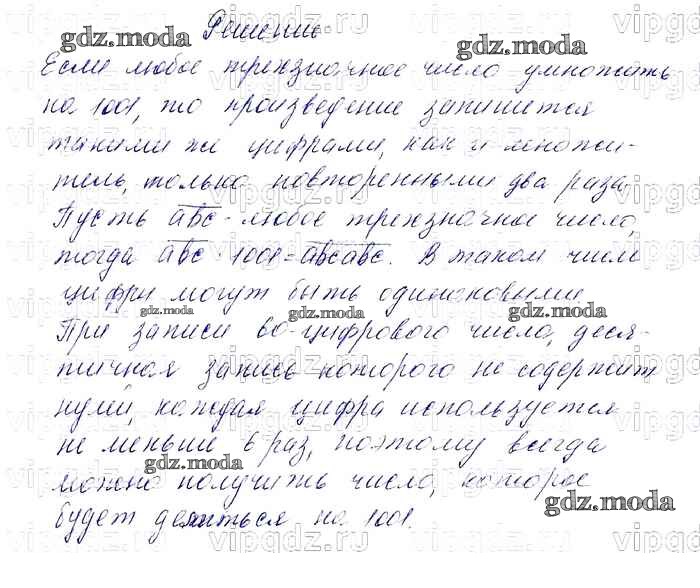 Решение
Если любое трехзначное число умножить
на 1001, то произведение запишется
такими же цифрами, как и множи-
тель, только повторенными два раза.
Пусть abc - любое трехзначное число,
тогда abc · 1001 = abcabc. В таком числе
цифры могут быть одинаковыми.
При записи 60-цифрового числа, деся-
тичная запись которого не содержит
нулей, каждая цифра используется
не меньше 6 раз, поэтому всегда
можно получить число, которое
будет делиться на 1001.
gdz.moda
gdz.moda
gdz.moda
gdz.moda
gdz.moda
gdz.moda
gdz.moda
vipgdz.ru